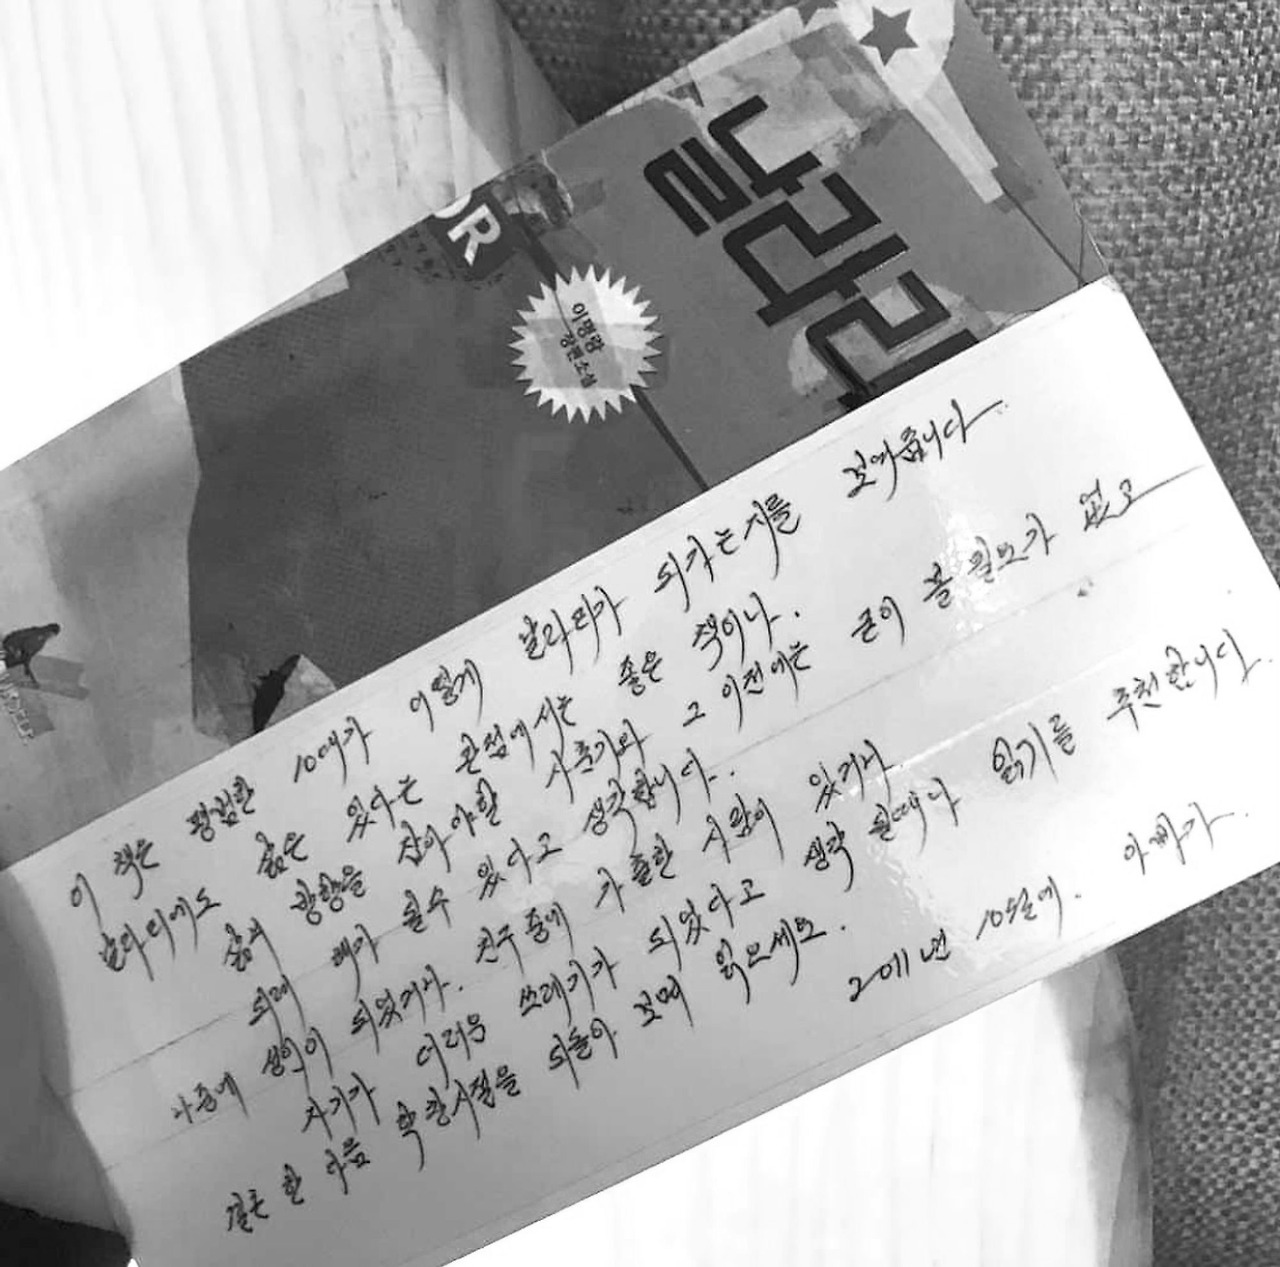 날라리
이명랑
장편소설
OR
이 책은 평범한 10대가 어떻게 날라리가 되가는지를 보여줍니다.
날라리에도 삶은 있다는 관점에서는 좋은 책이나.
삶의 방향을 잡아야할 사춘기와 그 이전에는 굳이 볼 필요가 없고
되려 해가 될수 있다고 생각합니다.
나중에 성인이 되었거나. 친구중에 가출한 사람이 있거나.
자기가 더러운 쓰레기가 되었다고 생각 될때나 읽기를 추천합니다.
결혼 한 다음 학창시절을 되돌아 보며 읽으세요.
2011년 10월에. 아빠가.